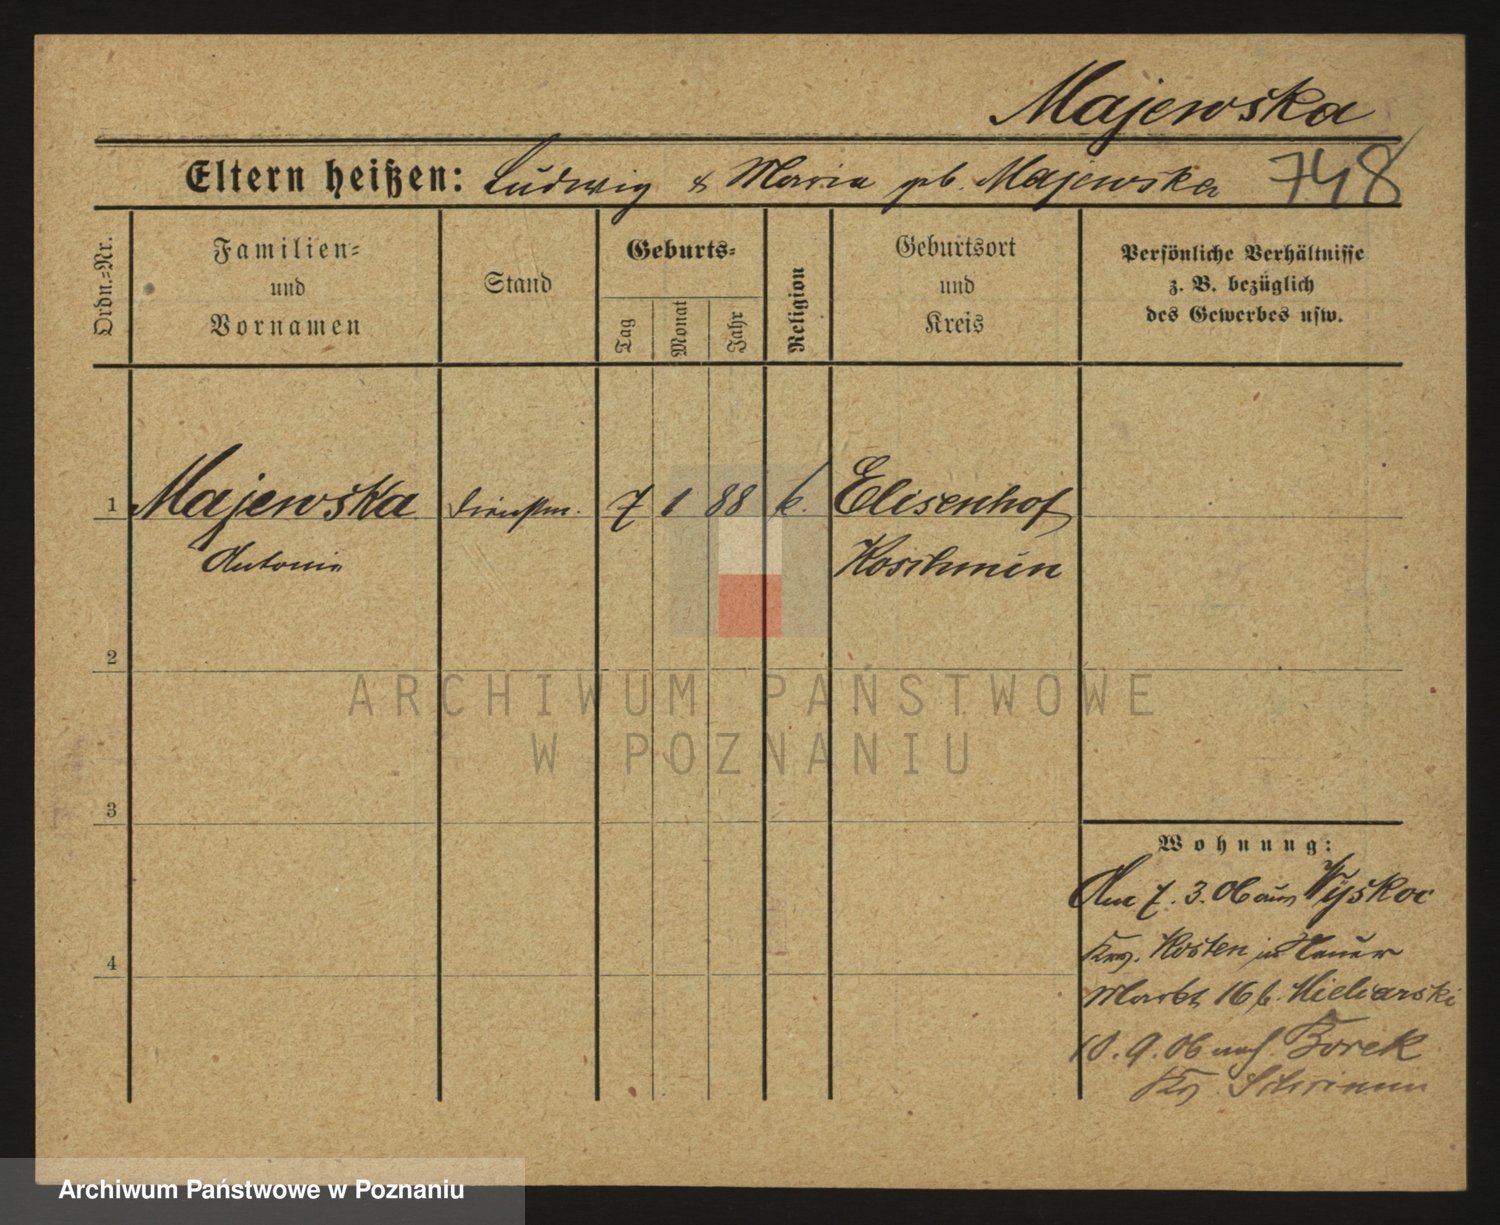 Majewska
Eltern heißen: Ludwig & Maria geb. Majewska 748
Ordn.=Nr.
Familien=
und
Vornamen
Stand
Geburts=
Tag
Monat
Jahr
Religion
Geburtsort
und
Kreis
Persönliche Verhältnisse
z. B. bezüglich
des Gewerbes usw.
1 Majewska Dienstm. 7 1 88 k. Elisenhof
Antonie Koschmin
2
ARCHIWUM PAŃSTWOWE
W POZNANIU
3
Wohnung:
Am 7. 3. 06 aus Wyskoc
Krs. Kosten in Neuer
4
Markt 16 b. Mieliarski
10. 9. 06 nach Borek
Krs. Schrimm
Archiwum Państwowe w Poznaniu